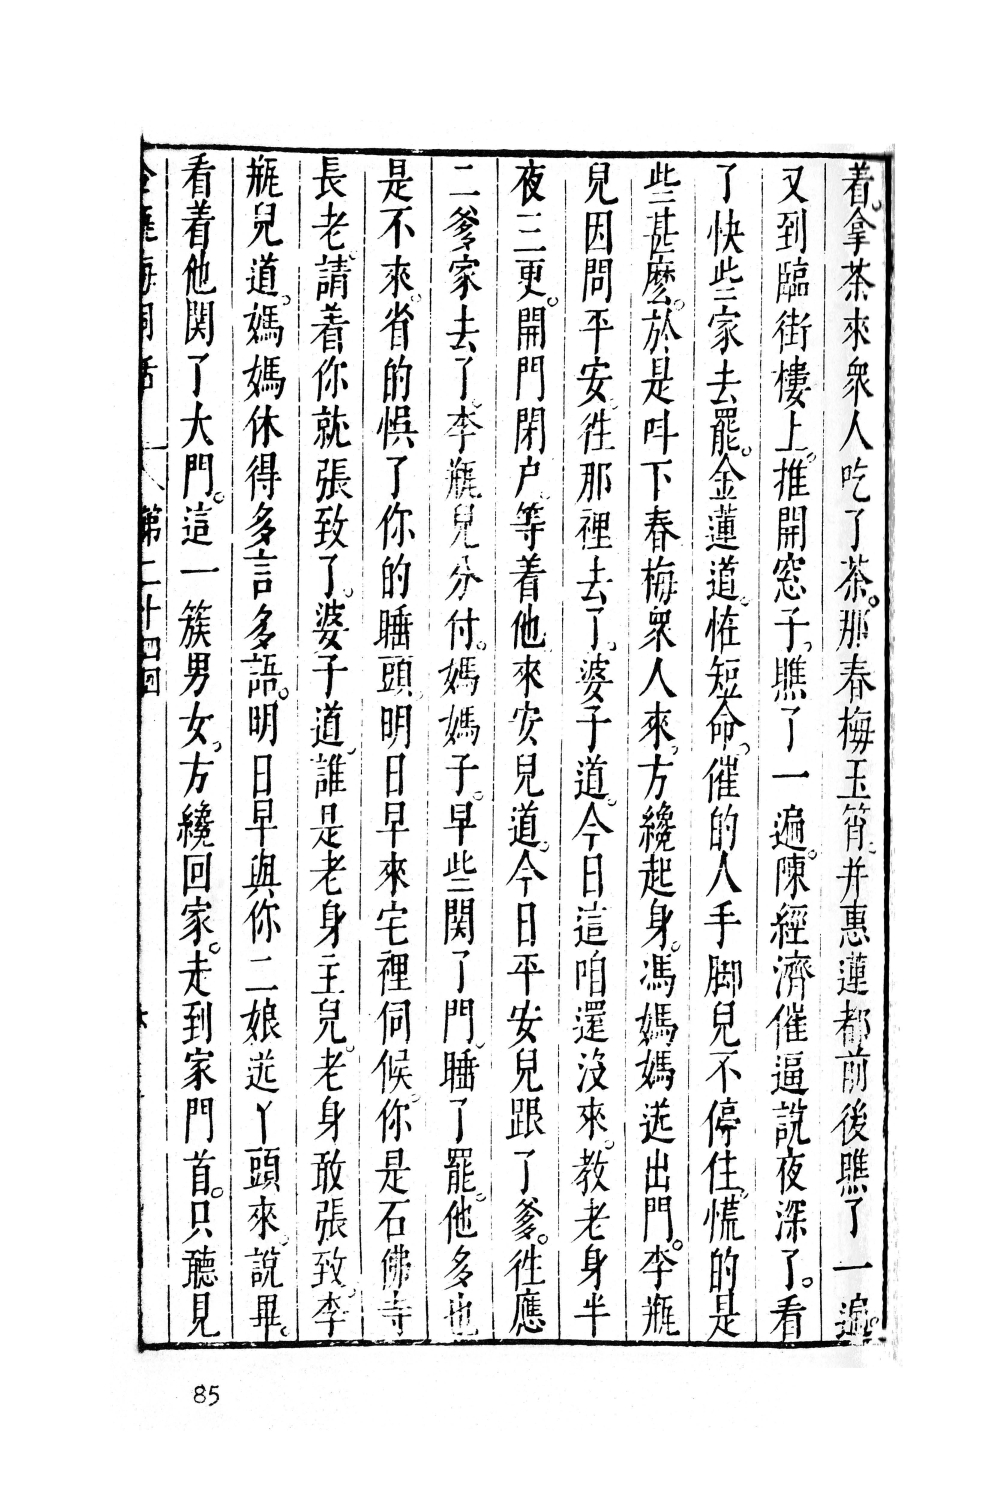 着。拿茶來衆人吃了茶。那春梅玉筲。并惠蓮都前後瞧了一遍。
又到臨街樓上。推開窓子。瞧了一遍。陳經濟催逼說夜深了。看
了快些家去罷。金蓮道。恠短命。催的人手脚兒不停住。慌的是
些甚麽。於是呌下春梅衆人來。方纔起身。馮媽媽送出門。李瓶
兒因問平安。徃那裡去了。婆子道。今日這咱還沒來。教老身半
夜三更。開門閉户。等着他來安兒道。今日平安兒跟了爹。徃應
二爹家去了。李瓶兒分付。媽媽子。早些関了門。睡了罷。他多也
是不來。省的悞了你的睡頭。明日早來宅裡伺候。你是石佛寺
長老。請着你就張致了。婆子道。誰是老身主兒。老身敢張致。李
瓶兒道。媽媽休得多言多語。明日早與你二娘送丫頭來。說畢。
看着他関了大門。這一簇男女。方纔回家。走到家門首。只聽見
第二十四回
85